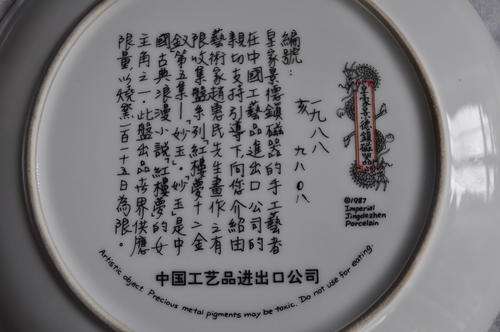 皇家景德鎮磁器
©1987
Imperial
Jingdezhen
Porcelain
編號:
一九八八
亥 九八〇八
皇家景德鎮磁器的手工藝者
在中國工藝品進出口公司的
親切支持引導下,向您介紹由
藝術家趙惠民先生畫作之有
限收集盤系列"紅樓夢"十二金
釵第五集—"妙玉"。妙玉是中
國古典浪漫小說"紅樓夢"的女
主角之一.此盤出品世界供應
限量以燒窯一百一十五日為限。
中国工艺品进出口公司
Artistic object. Precious metal pigments may be toxic. Do not use for eating.